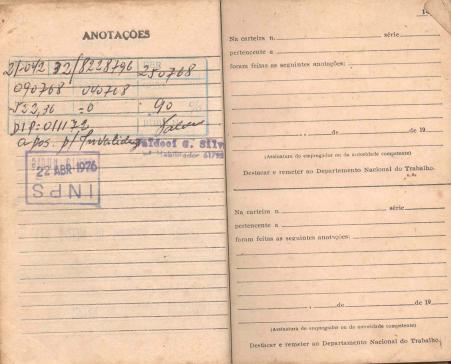 ANOTAÇÕES
21-042 32/8228796 250768
090768 040768
522,36 =0 90
DIP=011172
apos. p/ Invalidez
Valdeci G. Silv
22 ABR 1976
INPS
14
Na carteira n. série
pertencente a
foram feitas as seguintes anotações:
, de de 19
(Assinatura do empregador ou da autoridade competente)
Destacar e remeter ao Departamento Nacional do Trabalho.
Na carteira n. série
pertencente a
foram feitas as seguintes anotações:
, de de 19
(Assinatura do empregador ou da autoridade competente)
Destacar e remeter ao Departamento Nacional do Trabalho.